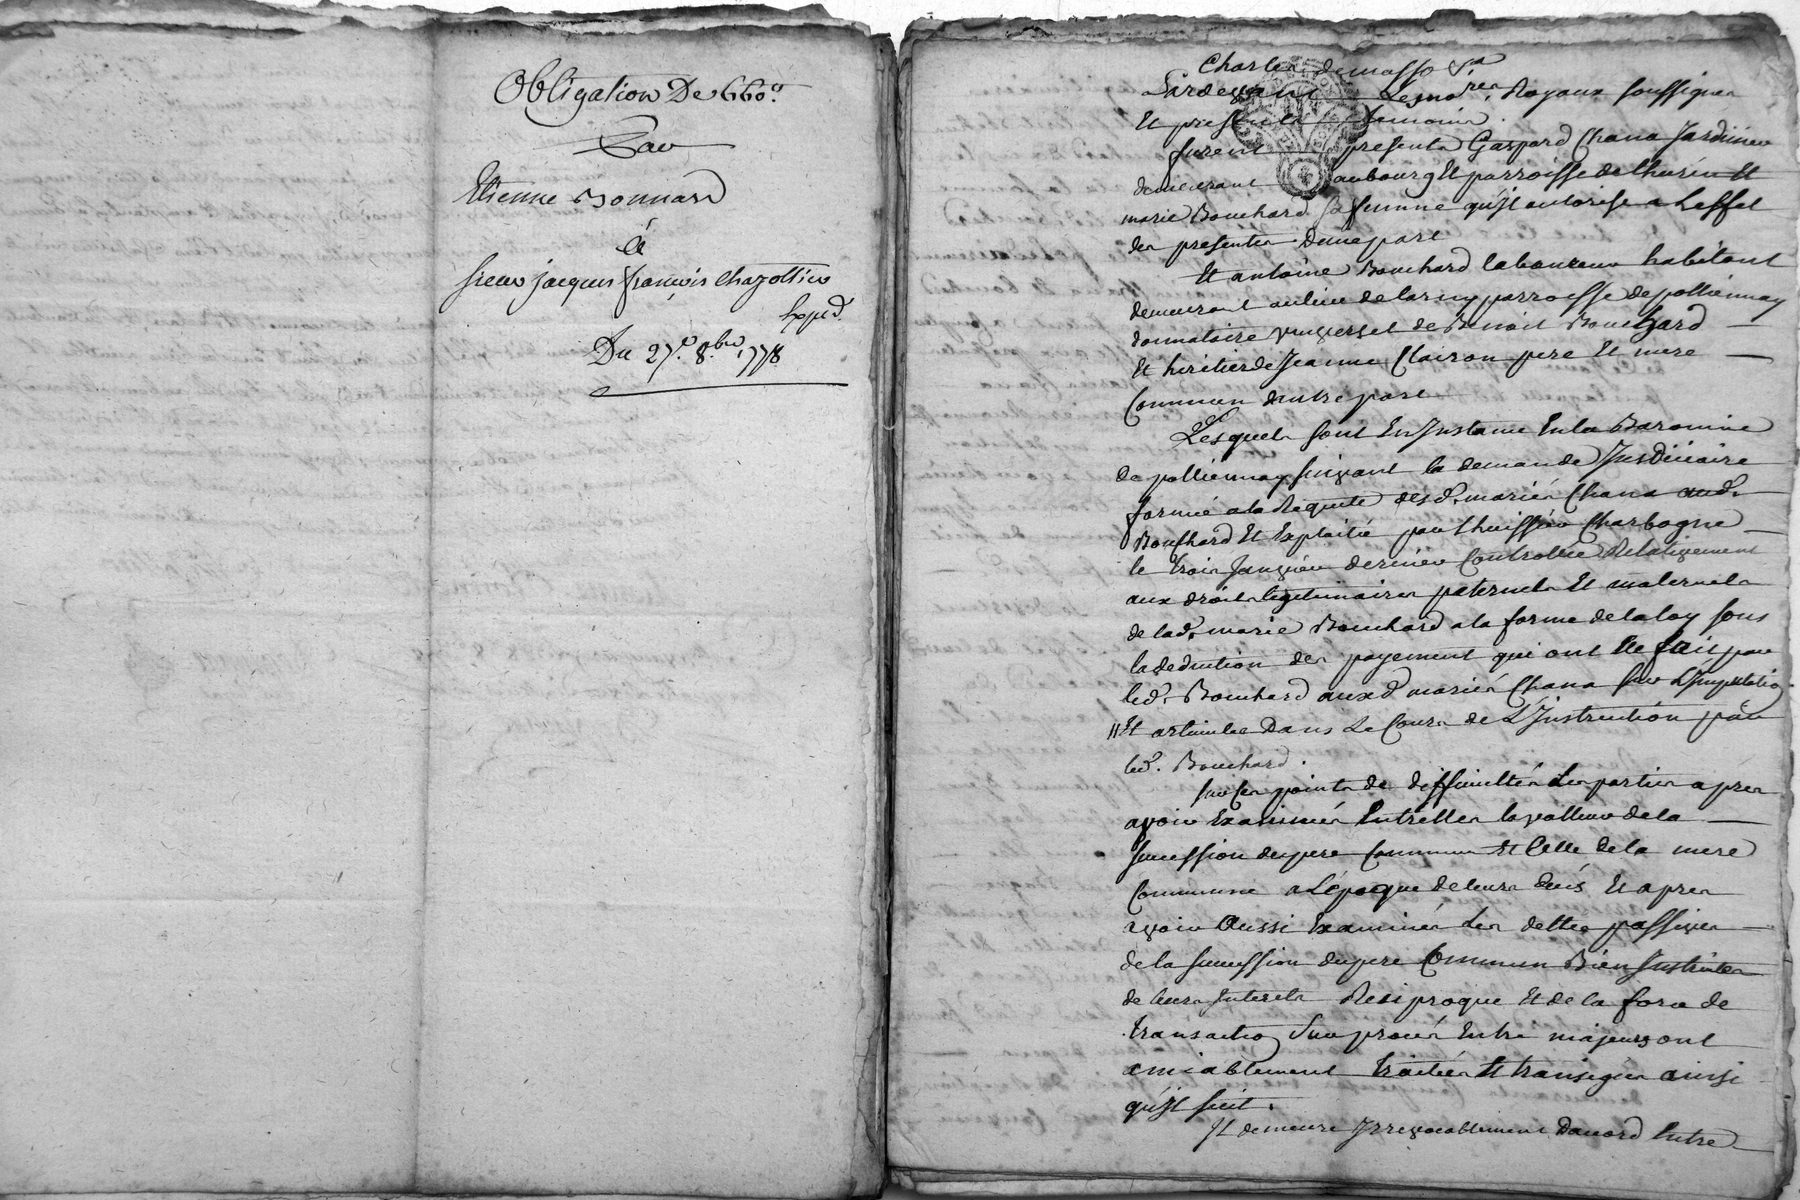 Obligation De 660.ᵗᵗ
Par
Etienne Bonnard
à
sieur jacques françois Chazottier
Exped.
Du 27.e 8.bre 1778
Pardevant Les no.res Royaux soussignes
Et presents temoins.
furent presents Gaspard Chana Jardinier
demeurant faubourg Et parroisse de thurins Et
marie Bouchard sa femme qu'Jl autorise a L'effet
des presentes Dune part
Et antoine Bouchard laboureur habitant
demeurant au lieu de Larny parroisse de pollionnay
donnataire universel de Benoit Bouchard
Et heritier de Jeanne Clairon pere Et mere
Communs dautre part
Lesquels sont En Jnstance En la Baronnie
de pollionnay suivant la demande Judiciaire
formée a la Requete desd. mariés Chana and.
Bouchard Et Exploitée par l'huissier Charbogne
le trois Janvier dernier Controllée Relativement
aux droits legitimaires paternels Et maternels
de lad. marie Bouchard a la forme de la loy sous
la deduction des payements qui ont Eté faits par
led. Bouchard auxd. mariés Chana sur L'Jmputation
Et articulée Dans Le Cours de L'Jnstruction par
led. Bouchard.
sur Ces points de difficultés Les parties apres
avoir Examinés Entrelles la valleur de la
succession du pere Commun Et Celle de la mere
Commune a L'époque de leurs décés Et apres
avoir Aussi Examinés Les dettes passives
de la succession du pere Commun Bien Jnstruites
de leurs Jnterets Resiproque Et de la force de
transaction sur procés Entre majeurs ont
amiablement traitées Et transigées ainsi
qu'Jl suit.
Jl demeure Jrrevocablement D'accord Entre